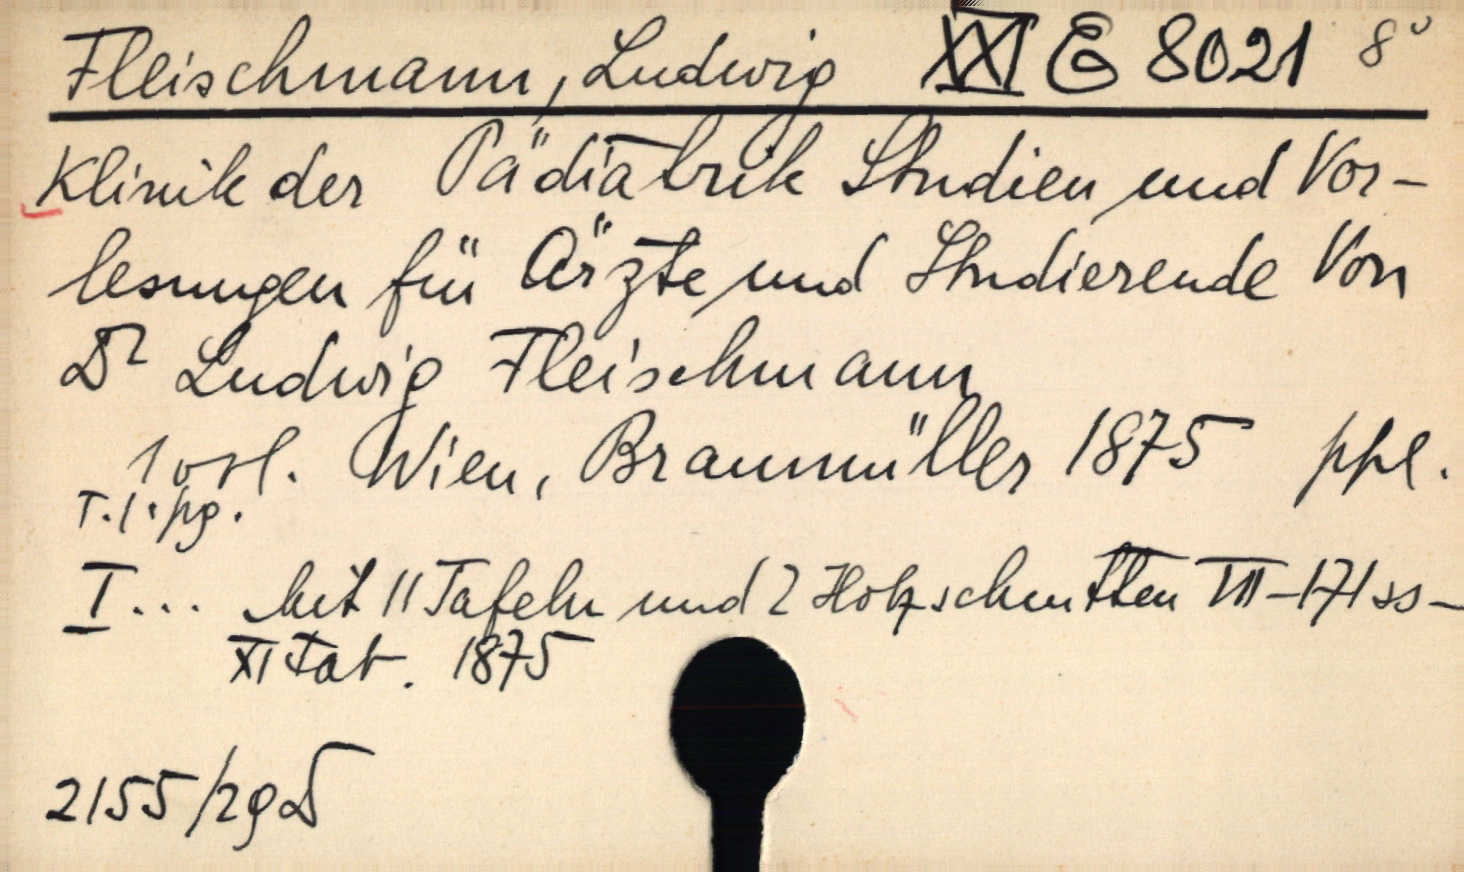 Fleischmann, Ludwig XXI E 8021 8°
Klinik der Pädiatrik Studien und Vor-
lesungen für Ärzte und Studierende Von
Dr Ludwig Fleischmann
1 vol. Wien, Braumüller 1875 ppl.
T. 1. pg.
I... Mit 11 Tafeln und 2 Holzschnitten VII-171 ss-
XI Tab. 1875
2155/29 D